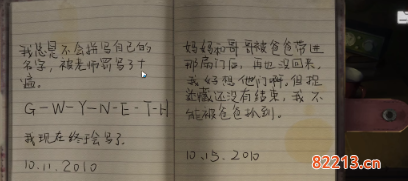 我总是不会拼写自己的
名字，被老师罚写了十
遍。
G-W-Y-N-E-T-H
我现在终于会写了
10.11.2010
妈妈和哥哥被爸爸带进
那扇门后，再也没回来，
我好想他们啊。但捉
迷藏还没有结束，我不
能被爸爸抓到。
10.13.2010
82213.cn